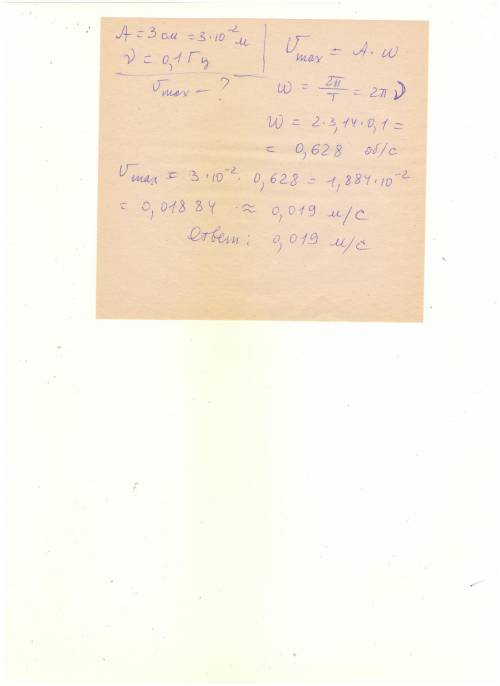 A = 3 см = 3·10⁻² м
ν = 0,1 Гц
υmax – ?
υmax = A · w
w = 2π/T = 2π ν
w = 2·3,14·0,1 =
= 0,628 об/с
υmax = 3·10⁻² · 0,628 = 1,884·10⁻²
= 0,01884 ≈ 0,019 м/с
Ответ: 0,019 м/с